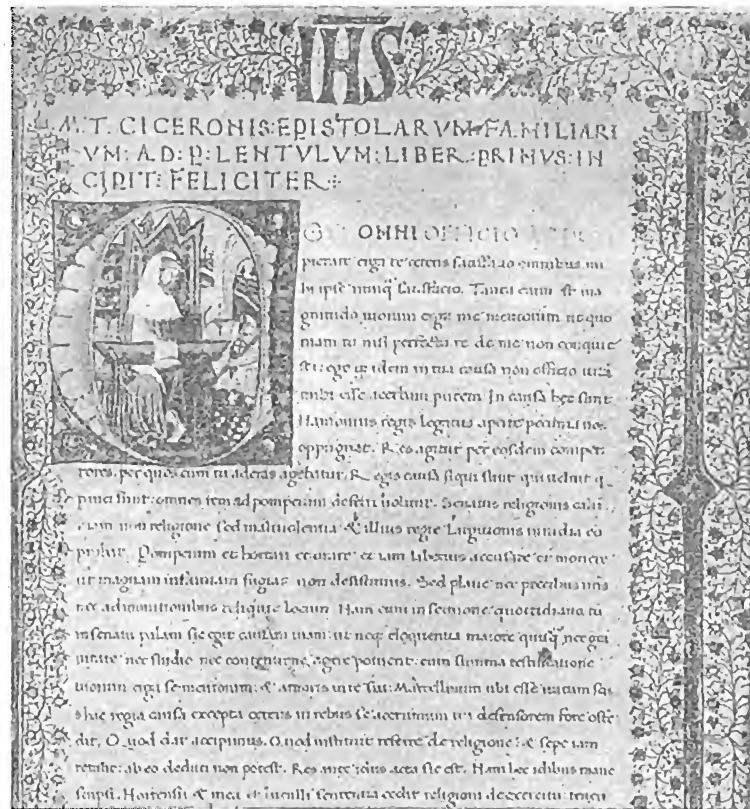 IHS
M. T. CICERONIS: EPISTOLARVM: FAMILIARI
VM: AD: P: LENTVLVM: LIBER: PRIMVS: IN
CIPIT: FELICITER
OMNI OFFICIO
pietate erga te ceteris satisfatio omnibus mi
hi ipse nunq satisfacio. Tanta enim est ma
gnitudo tuorum erga me meritorum ut quo
niam tu nisi perfecta re de me non conquie
sti: ego idem in tua causa non efficio uita
mihi esse acerbam putem. In causa hec sunt
Hamonius regis legatus aperte pecunia nos
oppugnat. Res agitur per eosdem credi
tores, per quos cum tu aderas agebatur. Regis causa siqui sunt qui uelint q
pauci sunt: omnes rem ad pompeium deferri uolunt. Senatus religionis calu
niam non religione sed maliuolentia & illius regie largitionis inuidia co
probat. Pompeium et hortari et orare et iam liberius accusare et monere
ut magnam infamiam fugiat non desistimus. Sed plane nec precibus nris
nec admonitionibus reliquit locum. Nam cum in sermone quottidiano tu
in senatu palam sic egit causam tuam: ut neq eloquentia maiore quisq nec gra
uitate nec studio nec contentione agere potuerit: cum summa testificatione
tuorum erga se meritorum: & amoris in te sui. Marcellinum tibi esse iratum scis
hic regia causa excepta ceteris in rebus se acerrimum tui defensorem fore oste
dit. Quod dat accipimus. Quod instituit referre de religione: & sepe iam
retulit: ab eo deduci non potest. Res ante idus acta sic est. Nam hec idibus mane
scripsi. Hortensii & mea et luculli sententia cedit religioni de exercitu: teneri